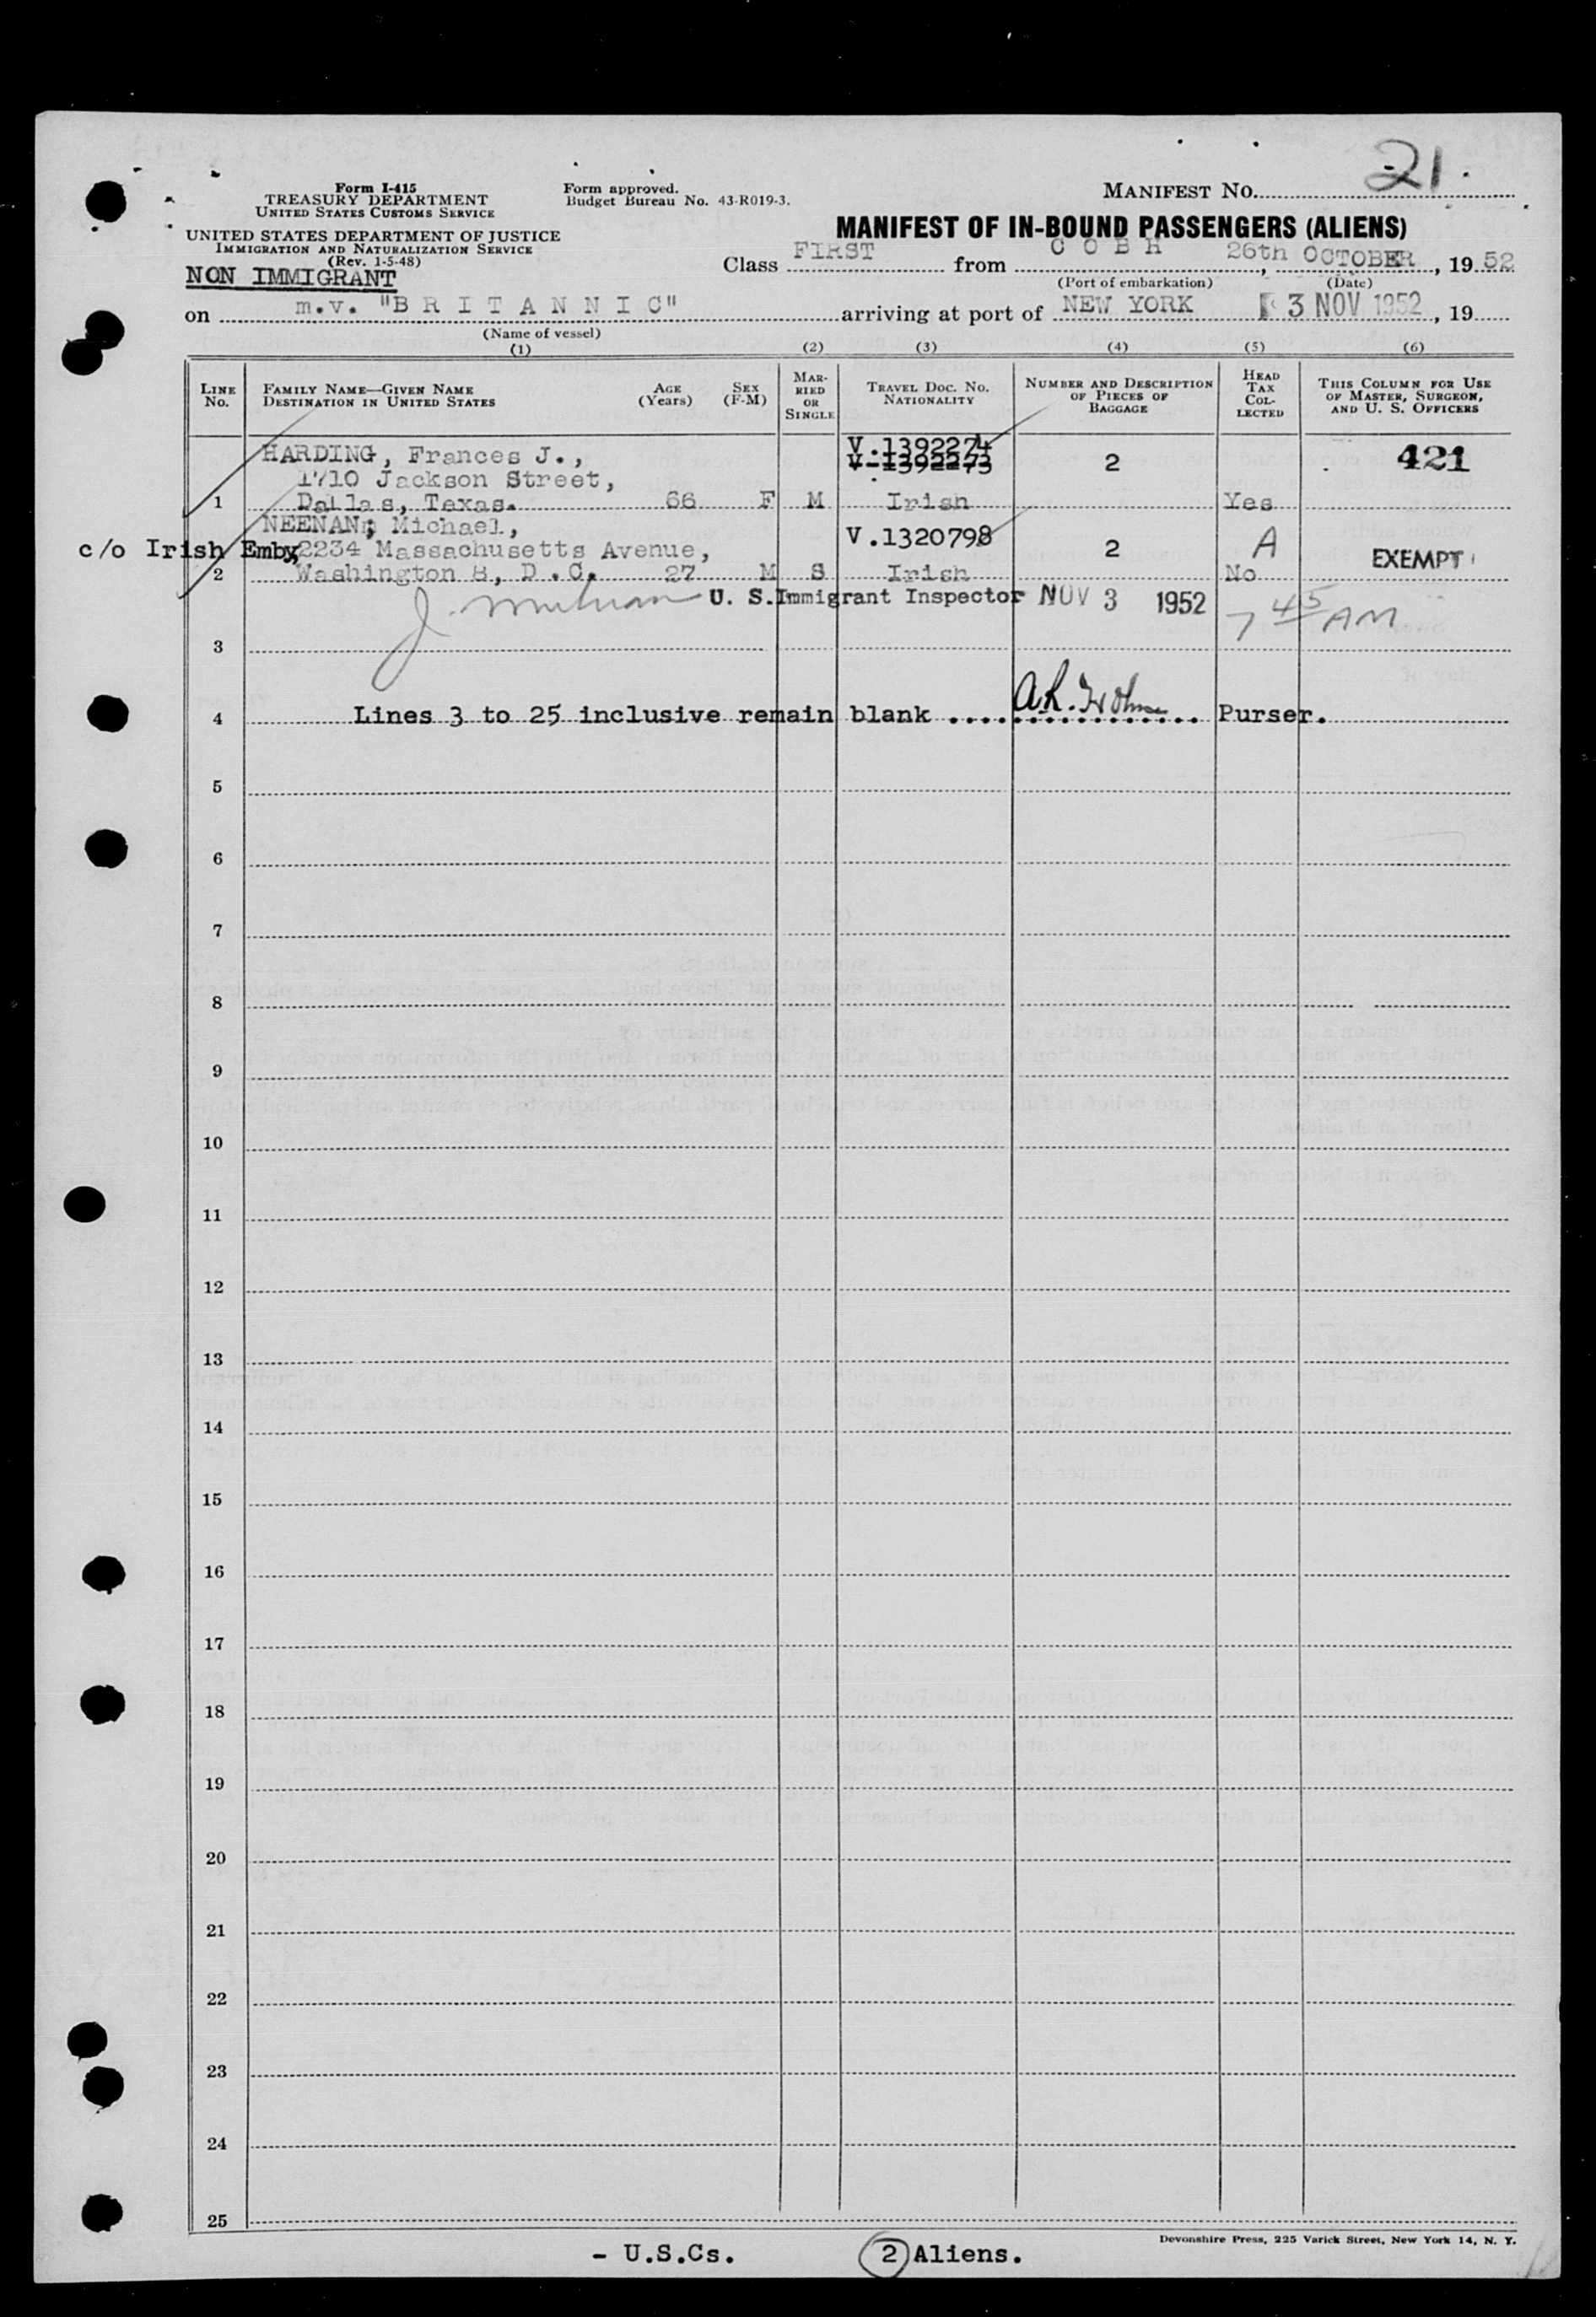 21.
Form I-415
TREASURY DEPARTMENT
UNITED STATES CUSTOMS SERVICE
Form approved.
Budget Bureau No. 43-R019-3.
MANIFEST NO.
UNITED STATES DEPARTMENT OF JUSTICE
IMMIGRATION AND NATURALIZATION SERVICE
(Rev. 1-5-48)
NON IMMIGRANT
MANIFEST OF IN-BOUND PASSENGERS (ALIENS)
Class FIRST from C O B H, 26th OCTOBER, 19 52
(Port of embarkation) (Date)
on m.v. "B R I T A N N I C" arriving at port of NEW YORK 3 NOV 1952, 19
(Name of vessel)
(1) (2) (3) (4) (5) (6)
LINE NO. FAMILY NAME—GIVEN NAME DESTINATION IN UNITED STATES AGE (Years) SEX (F-M) MARRIED OR SINGLE TRAVEL DOC. NO. NATIONALITY NUMBER AND DESCRIPTION OF PIECES OF BAGGAGE HEAD TAX COLLECTED THIS COLUMN FOR USE OF MASTER, SURGEON, AND U. S. OFFICERS
HARDING, Frances J., V.1392274 421
1710 Jackson Street, V-1392273 2
1 Dallas, Texas. 66 F M Irish Yes
NEENAN, Michael, V.1320798
c/o Irish Emby, 2234 Massachusetts Avenue, 2 A EXEMPT
2 Washington 8, D.C. 27 M S Irish No
U. S. Immigrant Inspector NOV 3 1952 7 45 AM
3
4 Lines 3 to 25 inclusive remain blank .... Purser.
5
6
7
8
9
10
11
12
13
14
15
16
17
18
19
20
21
22
23
24
25
Devonshire Press, 225 Varick Street, New York 14, N. Y.
- U.S.Cs. 2 Aliens.